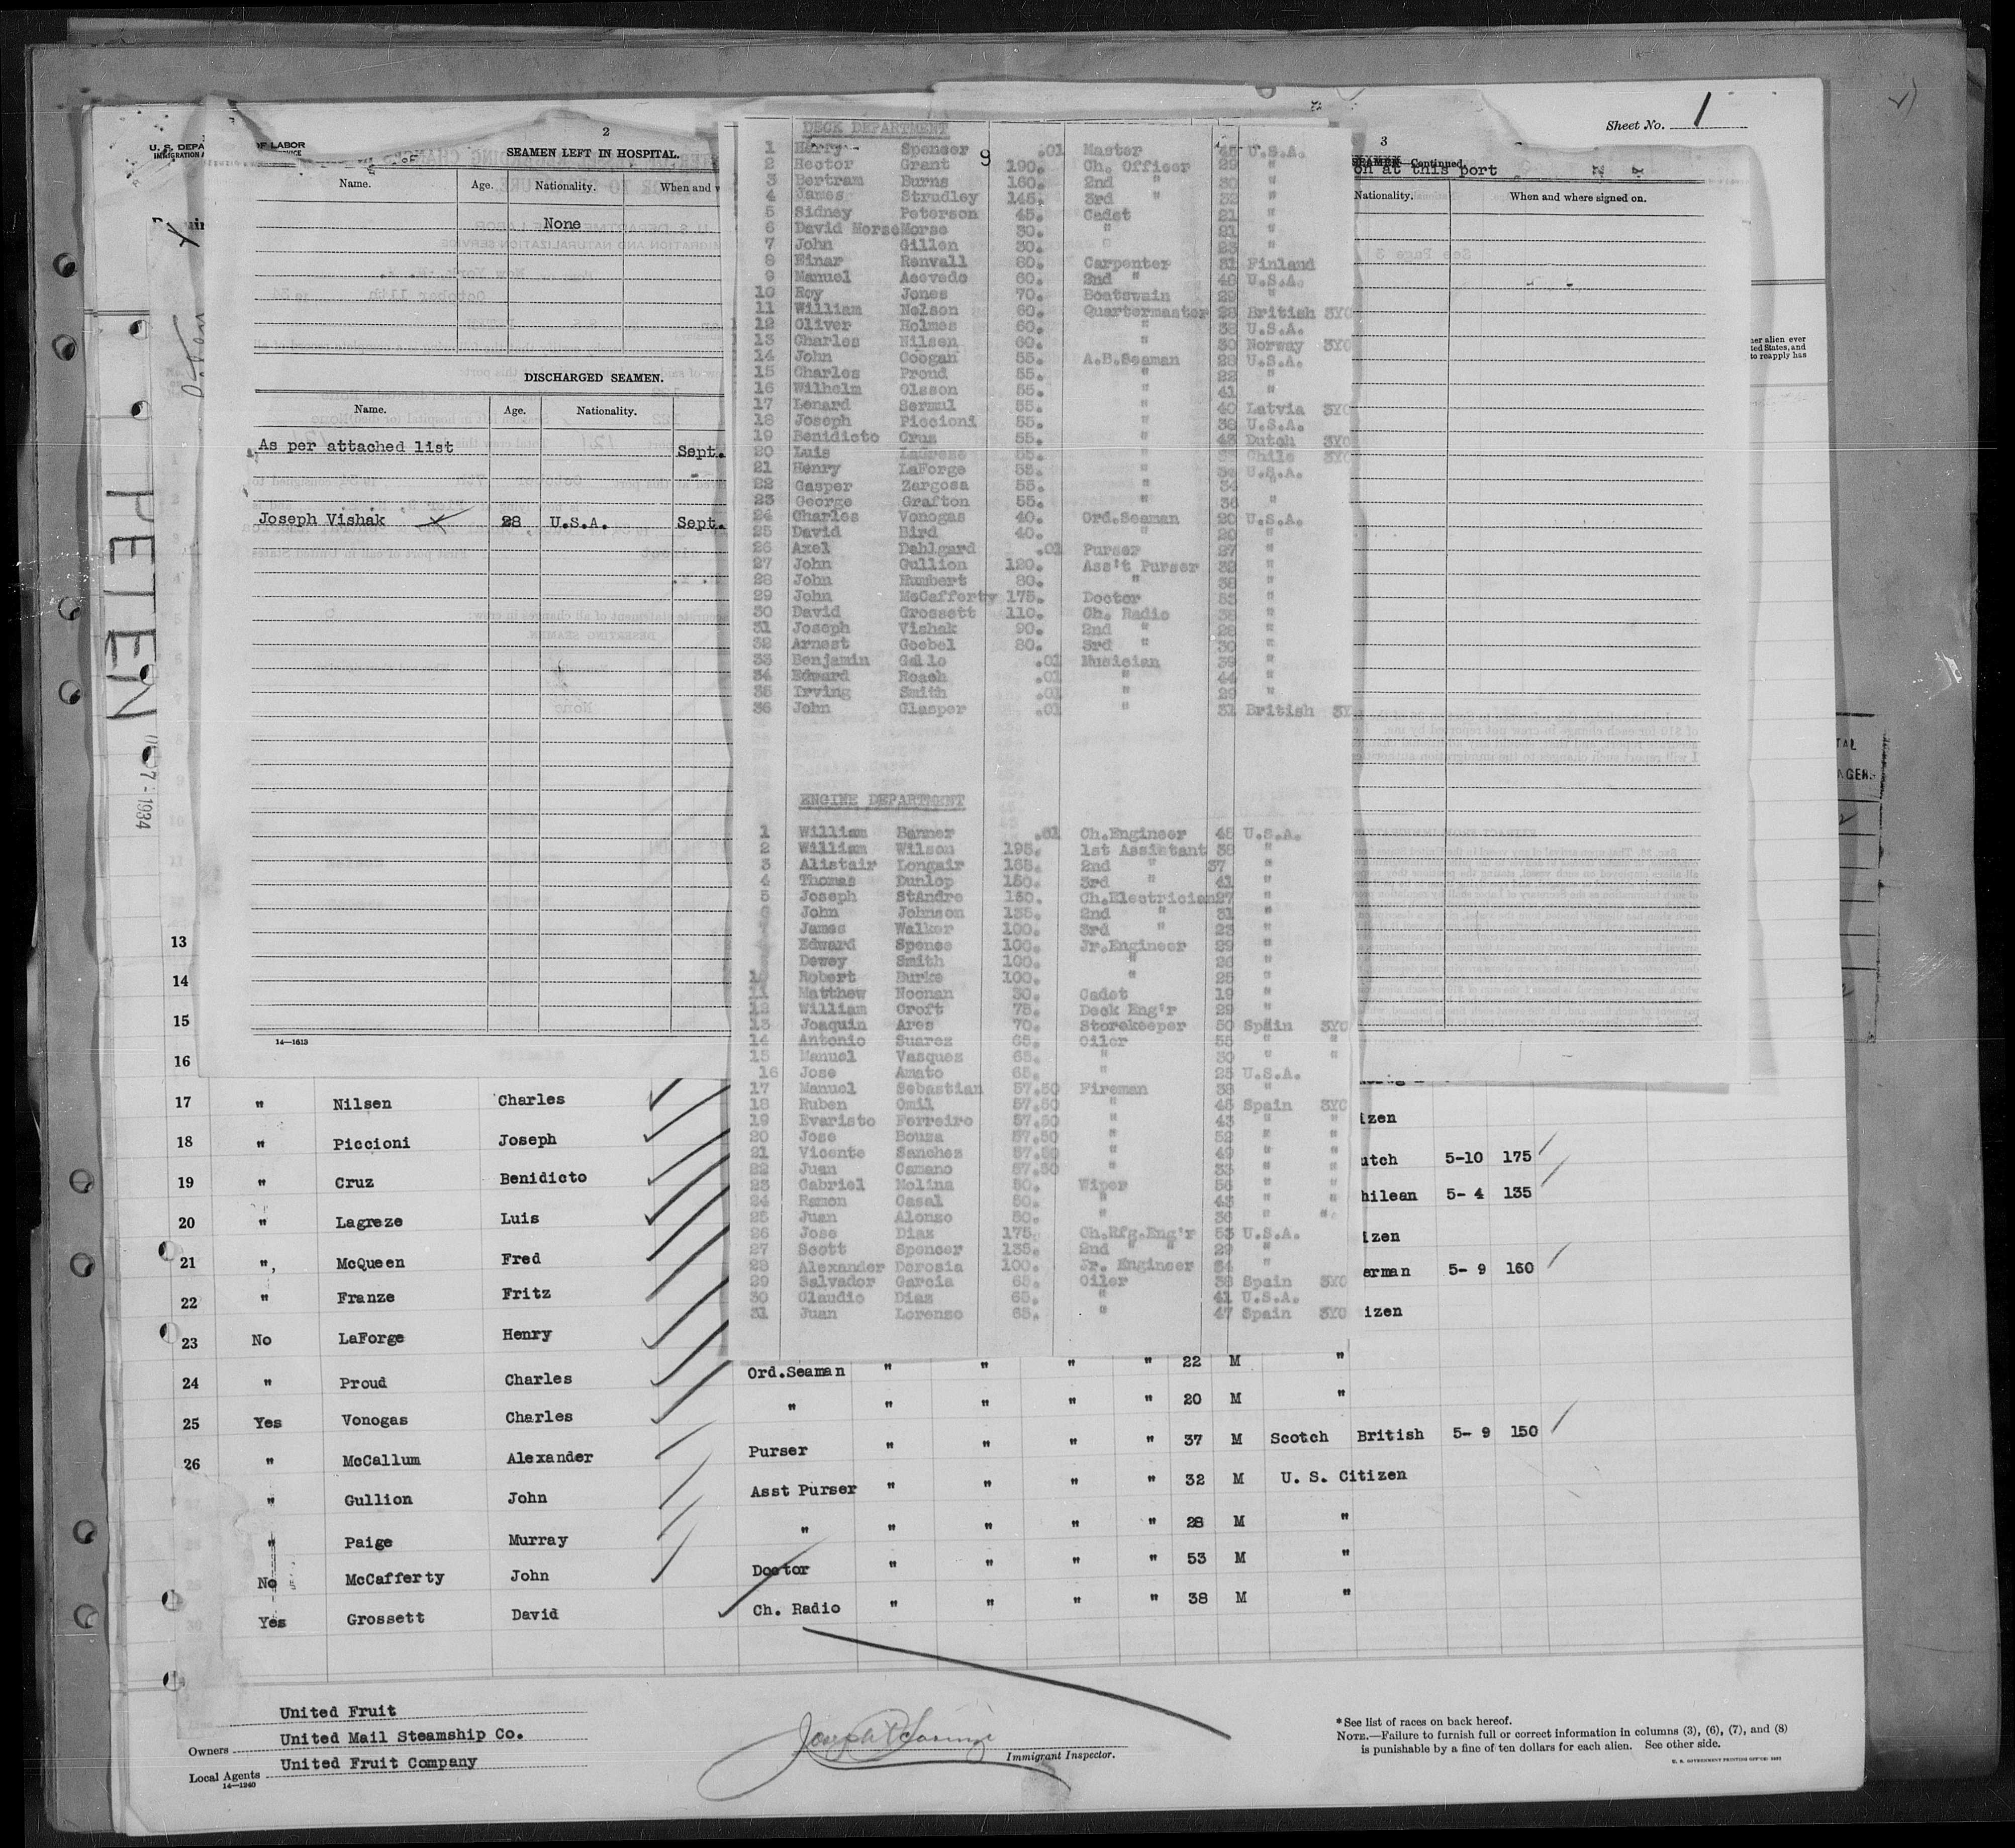 Sheet No. 1
U. S. DEPA OF LABOR
2
SEAMEN LEFT IN HOSPITAL.
Name. Age. Nationality. When and w
None
DISCHARGED SEAMEN.
Name. Age. Nationality.
As per attached list Sept.
Joseph Vishak 28 U.S.A. Sept.
14—1613
PETEN
7-1934
3
Continued.
on at this port
Nationality. When and where signed on.
her alien ever
ted States, and
to reapply has
DECK DEPARTMENT
9
1 Harry Spencer .01 Master 45 U.S.A.
2 Hector Grant 190. Ch. Officer 29 "
3 Bertram Burns 160. 2nd " 30 "
4 James Strudley 145. 3rd " 32 "
5 Sidney Peterson 45. Cadet 21 "
6 David Morse Morse 30. " 21 "
7 John Gillen 30. " 23 "
8 Einar Renvall 80. Carpenter 31 Finland
9 Manuel Acevedo 60. 2nd " 48 U.S.A.
10 Roy Jones 70. Boatswain 29 "
11 William Nelson 60. Quartermaster 28 British 3YC
12 Oliver Holmes 60. " 38 U.S.A.
13 Charles Nilsen 60. " 30 Norway 3YC
14 John Coogan 55. A.B.Seaman 28 U.S.A.
15 Charles Proud 55. " 22 "
16 Wilhelm Olsson 55. " 41 "
17 Lenard Sermul 55. " 40 Latvia 3YC
18 Joseph Piccioni 55. " 38 U.S.A.
19 Benidicto Cruz 55. " 43 Dutch 3YC
20 Luis LaGreze 55. " Chile 3YC
21 Henry LaForge 55. " U.S.A.
22 Gasper Zargosa 55. " 34
23 George Grafton 55. " 36 "
24 Charles Vonogas 40. Ord.Seaman 20 U.S.A.
25 David Bird 40. " 20 "
26 Axel Dahlgard .01 Purser 27 "
27 John Gullion 120. Ass't Purser 32 "
28 John Humbert 80. " 38 "
29 John McCafferty 175. Doctor 53 "
30 David Grossett 110. Ch. Radio 38 "
31 Joseph Vishak 90. 2nd " 28 "
32 Arnest Goebel 80. 3rd " 30 "
33 Benjamin Gallo .01 Musician 39 "
34 Edward Roach .01 " 44 "
35 Irving Smith .01 " 29 "
36 John Glasper .01 " 31 British 3Y
ENGINE DEPARTMENT
1 William Banner .01 Ch.Engineer 48 U.S.A.
2 William Wilson 195. 1st Assistant 38 "
3 Alistair Longair 165. 2nd " 37 "
4 Thomas Dunlop 150. 3rd " 41 "
5 Joseph StAndre 150. Ch.Electrician 27 "
6 John Johnson 135. 2nd " 31 "
James Walker 100. 3rd " 23 "
Edward Spence 100. Jr.Engineer 29 "
Dewey Smith 100. " 26 "
10 Robert Burke 100. " 25 "
11 Matthew Noonan 30. Cadet 19 "
12 William Croft 75. Deck Eng'r 29 "
13 Joaquin Ares 70. Storekeeper 50 Spain 3YC
14 Antonio Suarez 65. Oiler 55 " "
15 Manuel Vasquez 65. " 30 " "
16 Jose Amato 65. " 25 U.S.A.
17 Manuel Sebastian 57.50 Fireman 38 "
18 Ruben Omil 57.50 " 45 Spain 3YC
19 Evaristo Ferreiro 57.50 " 43 " "
20 Jose Bouza 57.50 " 52 " "
21 Vicente Sanchez 57.50 " 49 " "
22 Juan Camano 57.50 " 33 " "
23 Gabriel Molina 50. Wiper 56 " "
24 Ramon Casal 50. " 43 " "
25 Juan Alonzo 50. " 36 " "
26 Jose Diaz 175. Ch.Rfg.Eng'r 53 U.S.A.
27 Scott Spencer 135. 2nd " " 29 "
28 Alexander Derosia 100. Jr. Engineer 34 "
29 Salvador Garcia 65. Oiler 38 Spain 3YC
30 Claudio Diaz 65. " 41 U.S.A.
31 Juan Lorenzo 65. " 47 Spain 3YC
13
14
15
16
17 " Nilsen Charles
18 " Piccioni Joseph izen
19 " Cruz Benidicto utch 5-10 175
20 " Lagreze Luis hilean 5- 4 135
21 " McQueen Fred izen
22 " Franze Fritz erman 5- 9 160
23 No LaForge Henry izen
24 " Proud Charles Ord.Seaman " " " " 22 M "
25 Yes Vonogas Charles " " " " " 20 M "
26 " McCallum Alexander Purser " " " " 37 M Scotch British 5- 9 150
" Gullion John Asst Purser " " " " 32 M U. S. Citizen
" Paige Murray " " " " " 28 M "
No McCafferty John Doctor " " " " 53 M "
Yes Grossett David Ch. Radio " " " " 38 M "
United Fruit
Owners United Mail Steamship Co.
Local Agents United Fruit Company
14—1240
Immigrant Inspector.
*See list of races on back hereof.
NOTE.—Failure to furnish full or correct information in columns (3), (6), (7), and (8)
is punishable by a fine of ten dollars for each alien. See other side.